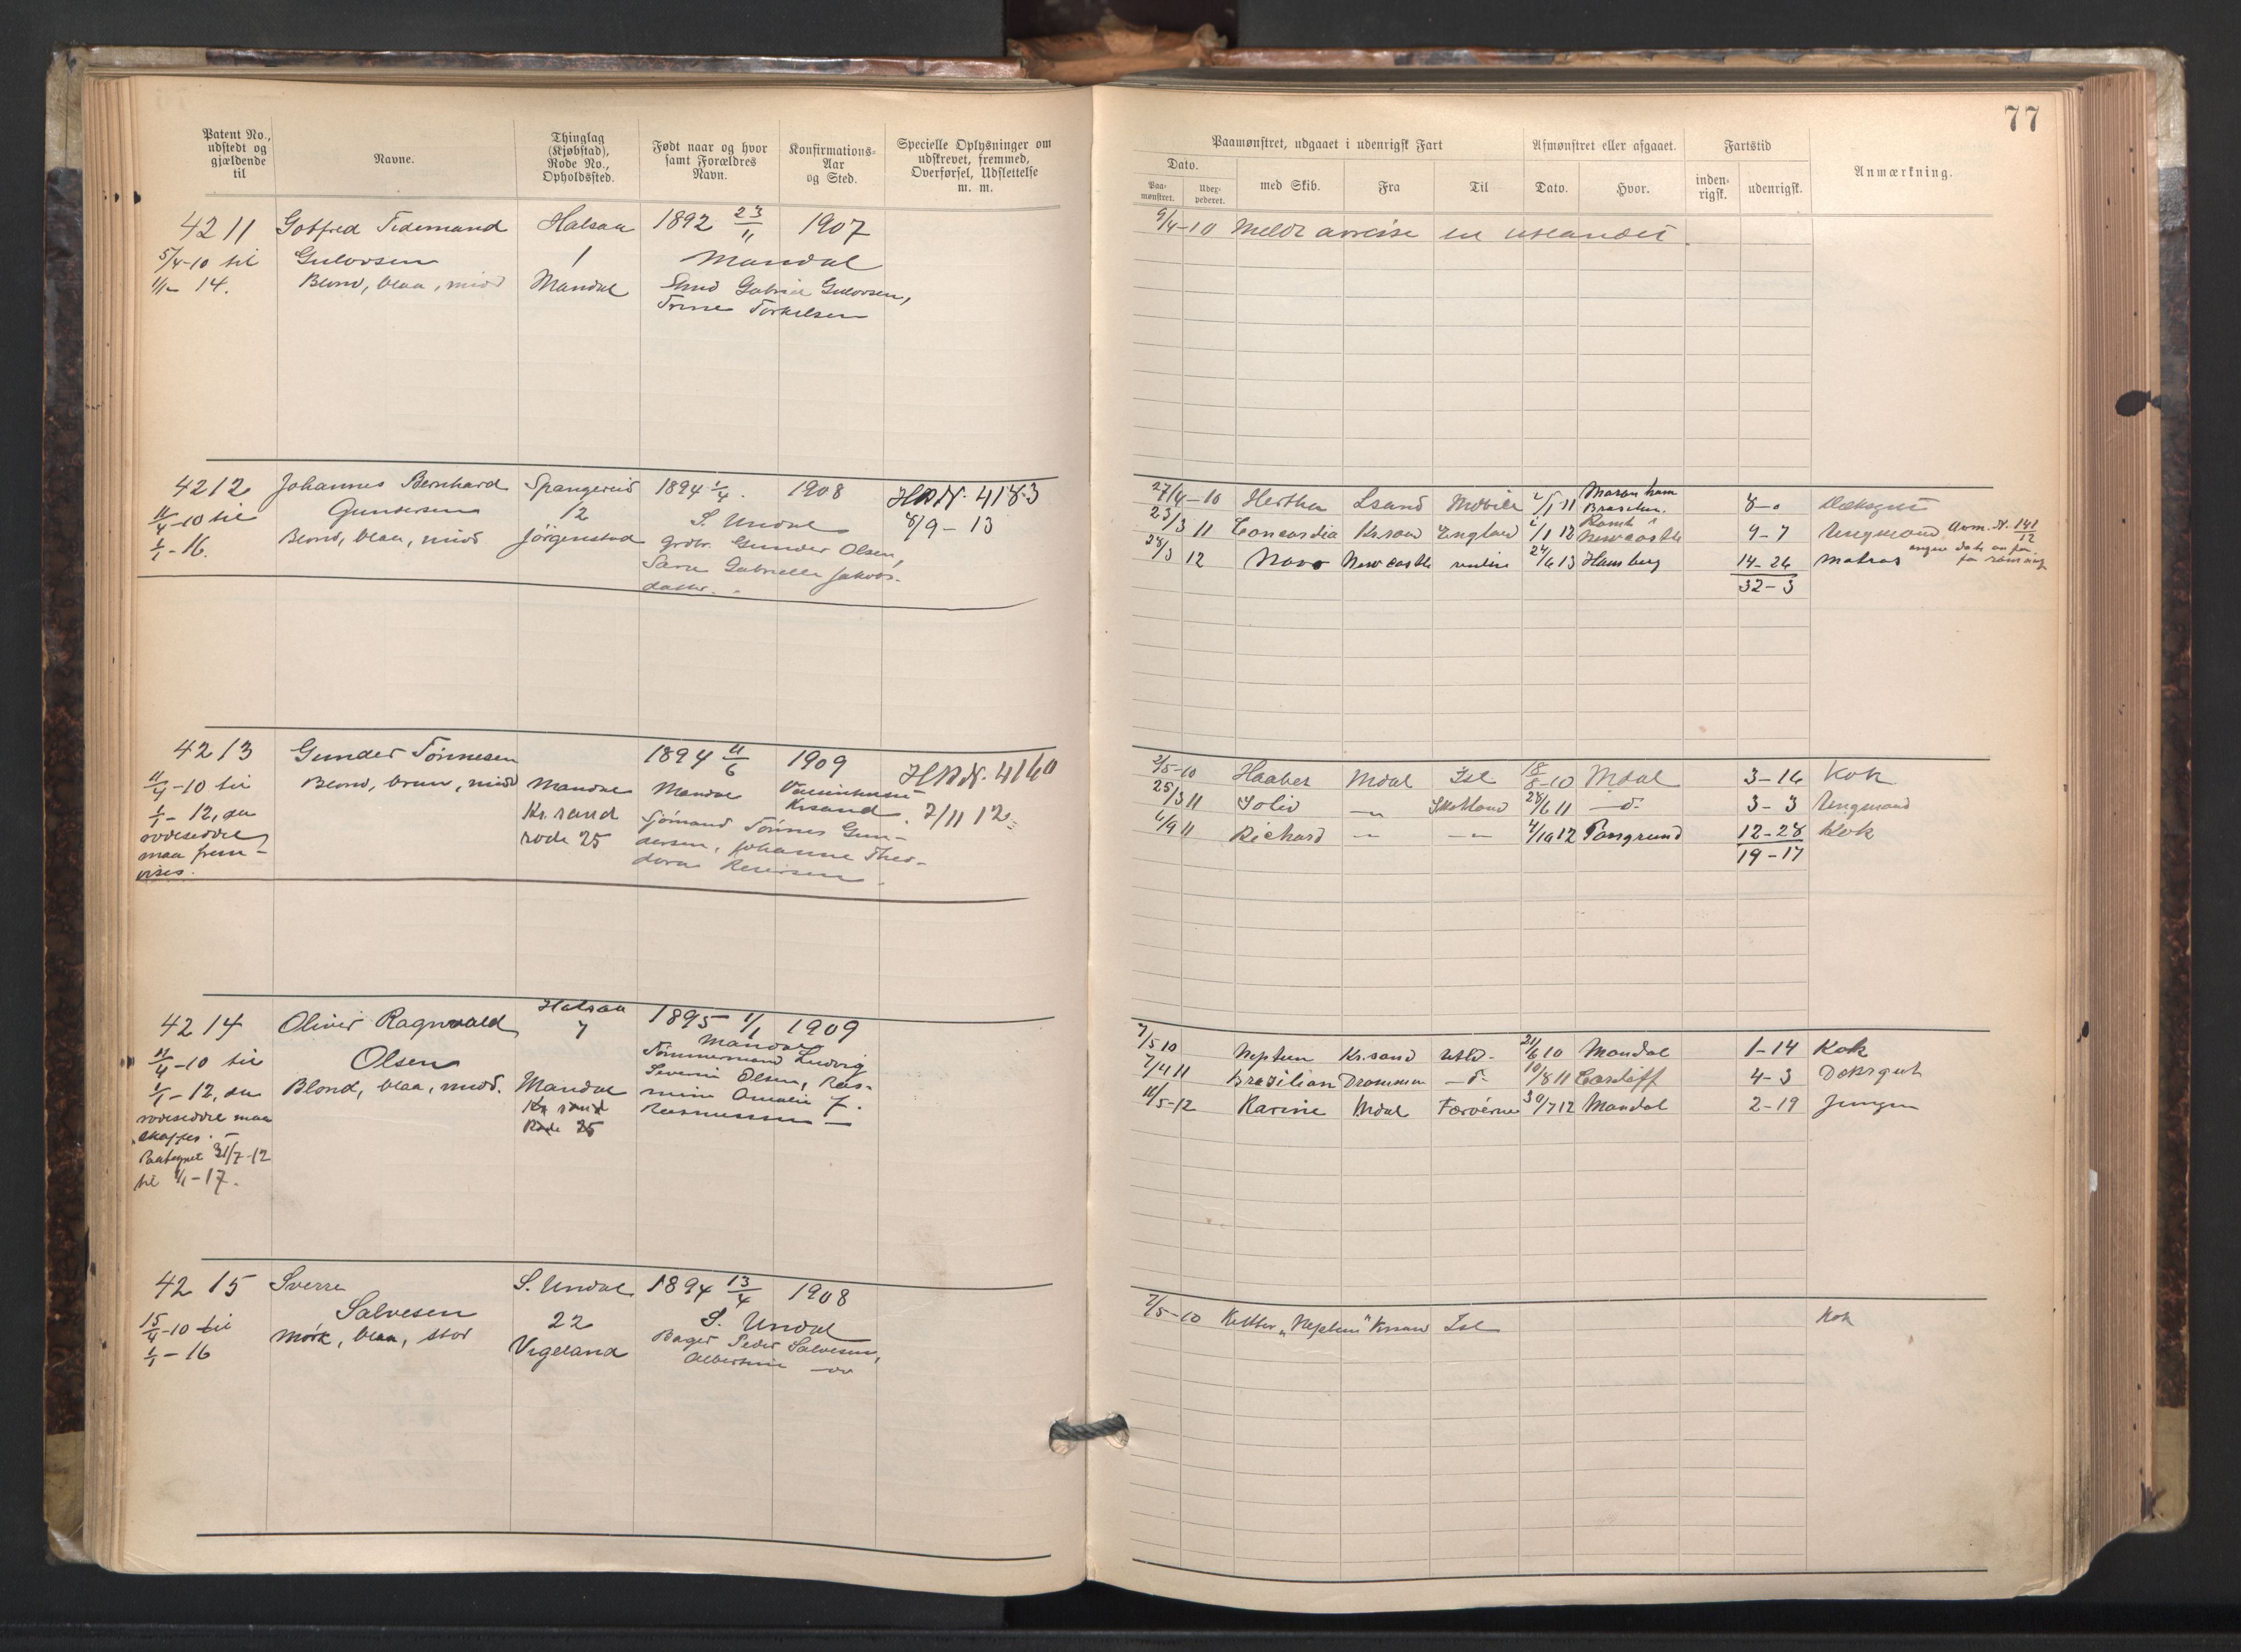 77
Patent No., udstedt og gjældende til
Navne.
Thinglag (Kjøbstad), Rode No., Opholdssted.
Født naar og hvor samt Forældres Navn.
Konfirmations-Aar og Sted.
Specielle Oplysninger om udskrevet, fremmed, Overførsel, Udslettelse m. m.
Paamønstret, udgaaet i udenrigsk Fart
Afmønstret eller afgaaet.
Fartstid
Anmærkning.
Dato.
Paa-mønstret.
med Skib.
Fra
Til
Dato.
Hvor.
inden-rigsk.
udenrigsk.
4211 Gotfred Tidemand Halsaa 1892 23/11 1907
5/4-10 til Gulovsen 1 Mandal
1/1- 14. Blond, blaa, midd Mandal Gabriel Gulovsen,
Trine Torkelsen
9/4-10 Meldt avreise til utlandet.
4212 Johannes Bernhard Spangereid 1894 1/4. 1908 4183
11/4-10 til Gundersen 12 S. Undal 8/9-13
1/1-16. Blond, blaa, midd. Jörgenstad Grdbr. Gunder Olsen,
Sara Gabrielle Jakobs-
datter.
27/4-10 Hertha Lsand Mobile 2/1 11 8-0 Dæksgut
23/3 11 Concordia Kr.sand England 2/1 12 Newcastle 9-7 Ungmand 141/12
28/3 12 Newcastle 24/6 13 Hamburg 14-26 Matros
32-3
4213 Gunder Tönnesen 1894 11/6 1909 4160
11/4-10 til Blond, brun, midd Mandal Mandal Krsand 7/11 12
1/1-12, da Kr.sand Sjömand Tönnes Gun-
rodeseddel rode 25 dersen, Johanne Theo-
maa frem- dora
vises.
2/5-10 Haabet Mdal Isl 18/8-10 Mdal 3-16 Kok
25/3 11 Solid -"- Skotland 28/6 11 -d- 3-3 Ungmand
6/9 11 Richard -"- -"- 4/10 12 12-28 Kok
19-17
4214 Oliver Ragnvald Halsaa 1895 1/1 1909
11/4-10 til Olsen 7 Mandal
1/1-12, da Blond, blaa, midd. Mandal Tömmermand Ludvig
rodeseddel maa Kr sand Severin Olsen, Ras-
skaffes. Rode 25 mine Amalie f.
Paategnet 31/7-12 Rasmussen
til 1/1-17.
7/5 10 Neptun Kr.sand Utld- 21/6 10 Mandal 1-14 Kok
7/4 11 Brazilian Drammen -d- 10/8 11 Cardiff 4-3 Deksgut
11/5-12 Karine Mdal Færöerne 30/7 12 Mandal 2-19 Jungm
4215 Sverre S. Undal 1894 13/4 1908
15/4-10 til Salvesen 22 S. Undal
1/1-16 Mörk, blaa, stor Vigeland Bager Peder Salvesen,
Albertine
7/5-10 "Neptun" Krsand Isl Kok